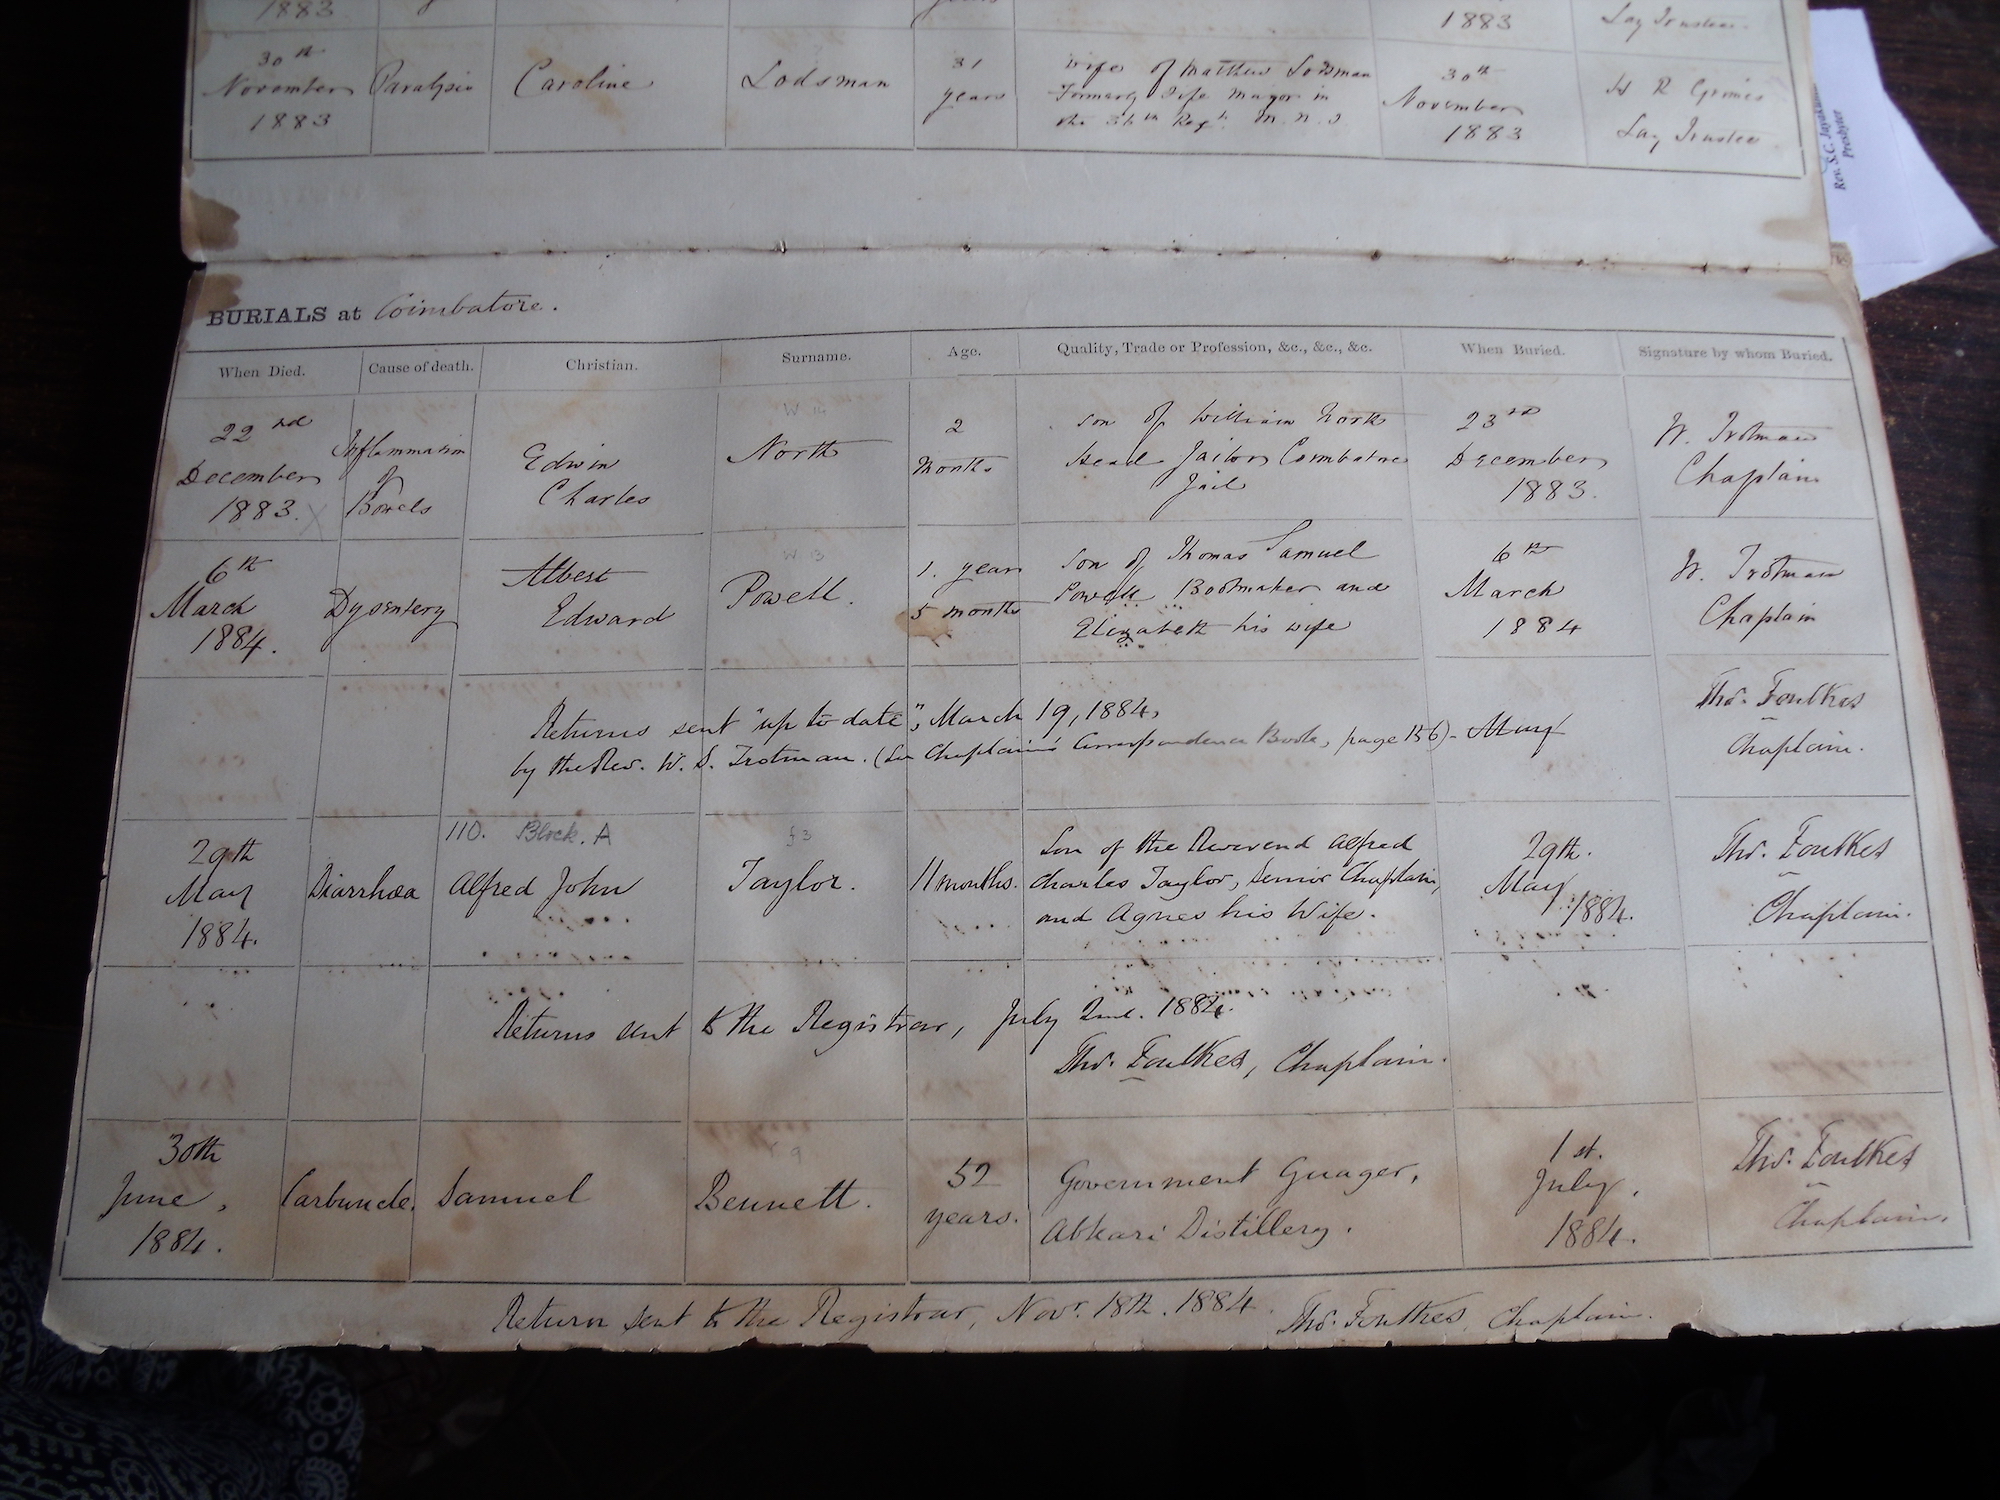 1883 years 1883 Lay Trustee
30th November 1883 Paralysis Caroline Lodsman 31 years
Wife of Matthew Lodsman
Formerly Fife Major in
the 36th Regt. M. N. I
30th November 1883
H R Grimes
Lay Trustee
Rev. S.C. Jayakumar
Presbyter
BURIALS at Coimbatore.
When Died. Cause of death. Christian. Surname. Age. Quality, Trade or Profession, &c., &c., &c. When Buried. Signature by whom Buried.
22nd December 1883.
Inflammation of Bowels
Edwin Charles
W 14
North
2 months
Son of William North
Head Jailor Coimbatore
Jail
23rd December 1883.
W. Trotman
Chaplain
6th March 1884.
Dysentery
Albert Edward
W 13
Powell.
1. year 5 months
Son of Thomas Samuel
Powell Bootmaker and
Elizabeth his wife
6th March 1884
W. Trotman
Chaplain
Returns sent "up to date", March 19, 1884,
by the Rev. W. S. Trotman. (See Chaplain's Correspondence Book, page 156) - May
Thos. Foulkes
Chaplain.
29th May 1884.
Diarrhœa
110. Block. A
Alfred John
f 3
Taylor.
11 months.
Son of the Reverend Alfred
Charles Taylor, Senior Chaplain,
and Agnes his Wife.
29th. May 1884.
Thos. Foulkes
Chaplain.
Returns sent to the Registrar, July 2nd. 1884.
Thos. Foulkes, Chaplain.
30th June, 1884.
Carbuncle.
Samuel
9
Bennett.
52 years.
Government Guager,
Abkari Distillery.
1st. July, 1884.
Thos. Foulkes
Chaplain.
Return sent to the Registrar, Novr. 18th. 1884. Thos. Foulkes, Chaplain.